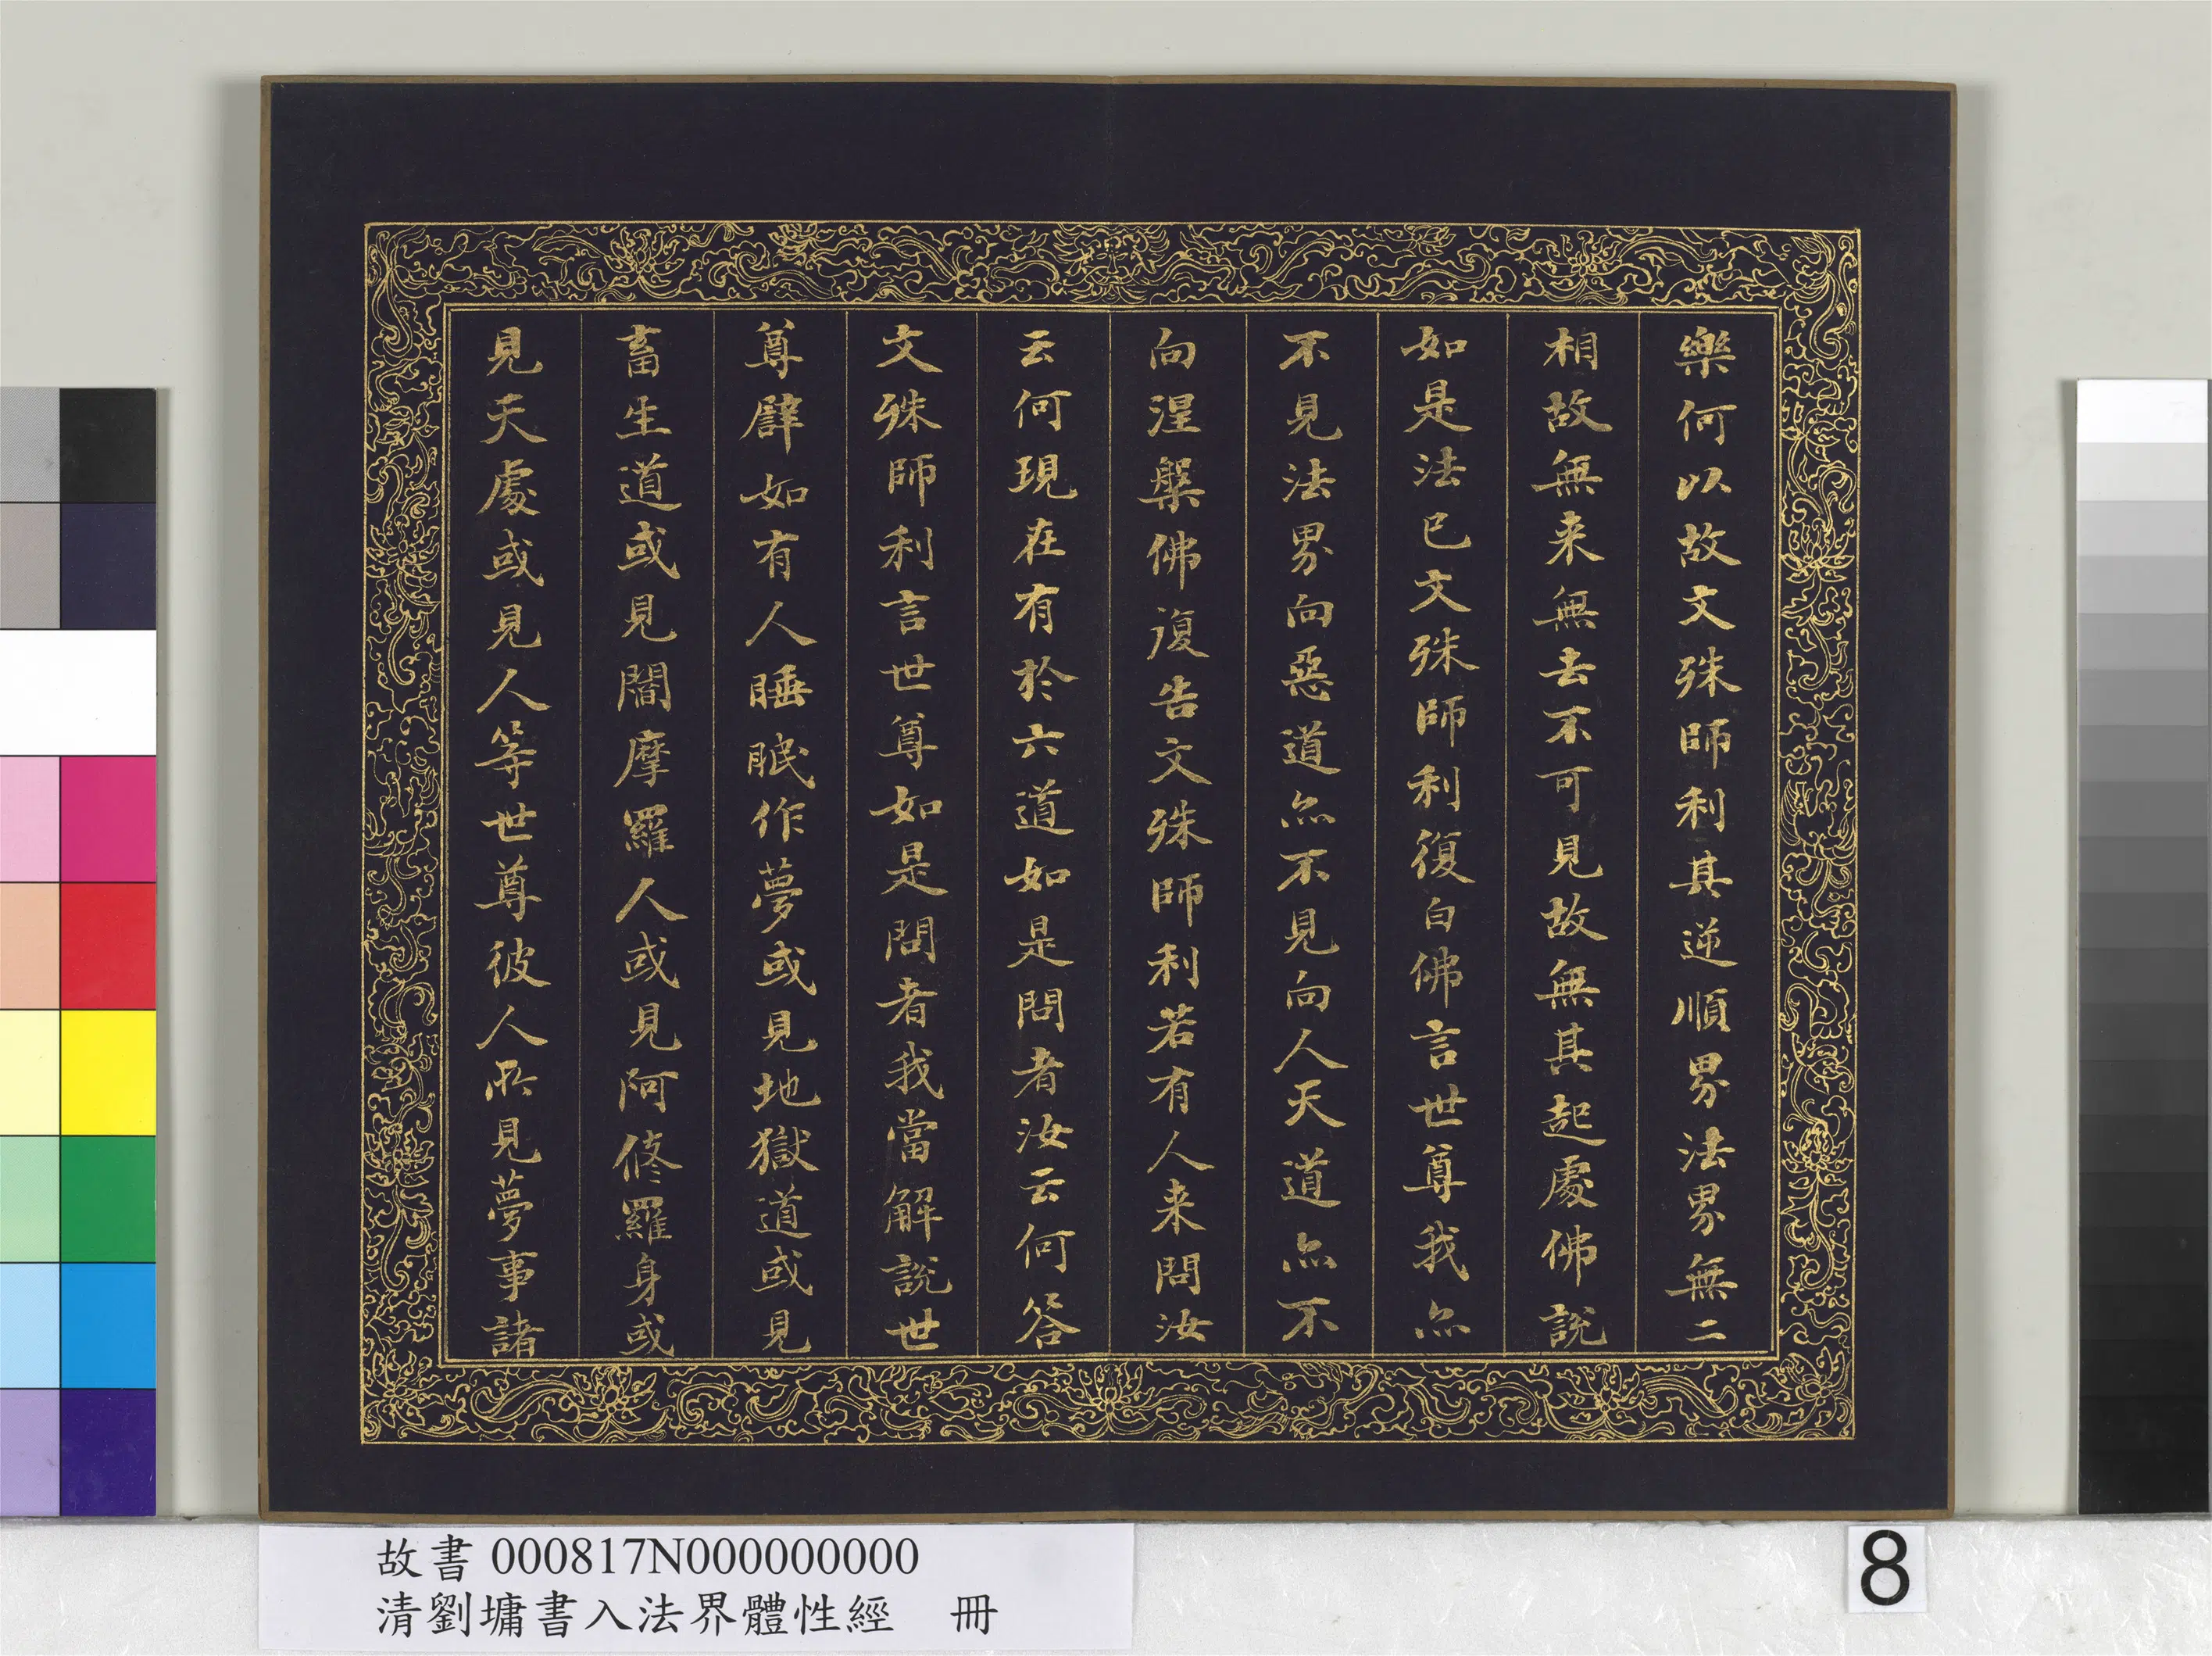 樂何以故文殊師利其逆順界法界無二
相故無来無去不可見故無其起處佛說
如是法已文殊師利復白佛言世尊我亦
不見法界向惡道亦不見向人天道亦不
向涅槃佛復告文殊師利若有人来問汝
云何現在有於六道如是問者汝云何答
文殊師利言世尊如是問者我當解說世
尊譬如有人睡眠作夢或見地獄道或見
畜生道或見閻摩羅人或見阿修羅身或
見天處或見人等世尊彼人所見夢事諸
故書 000817N000000000
清劉墉書入法界體性經 冊
8